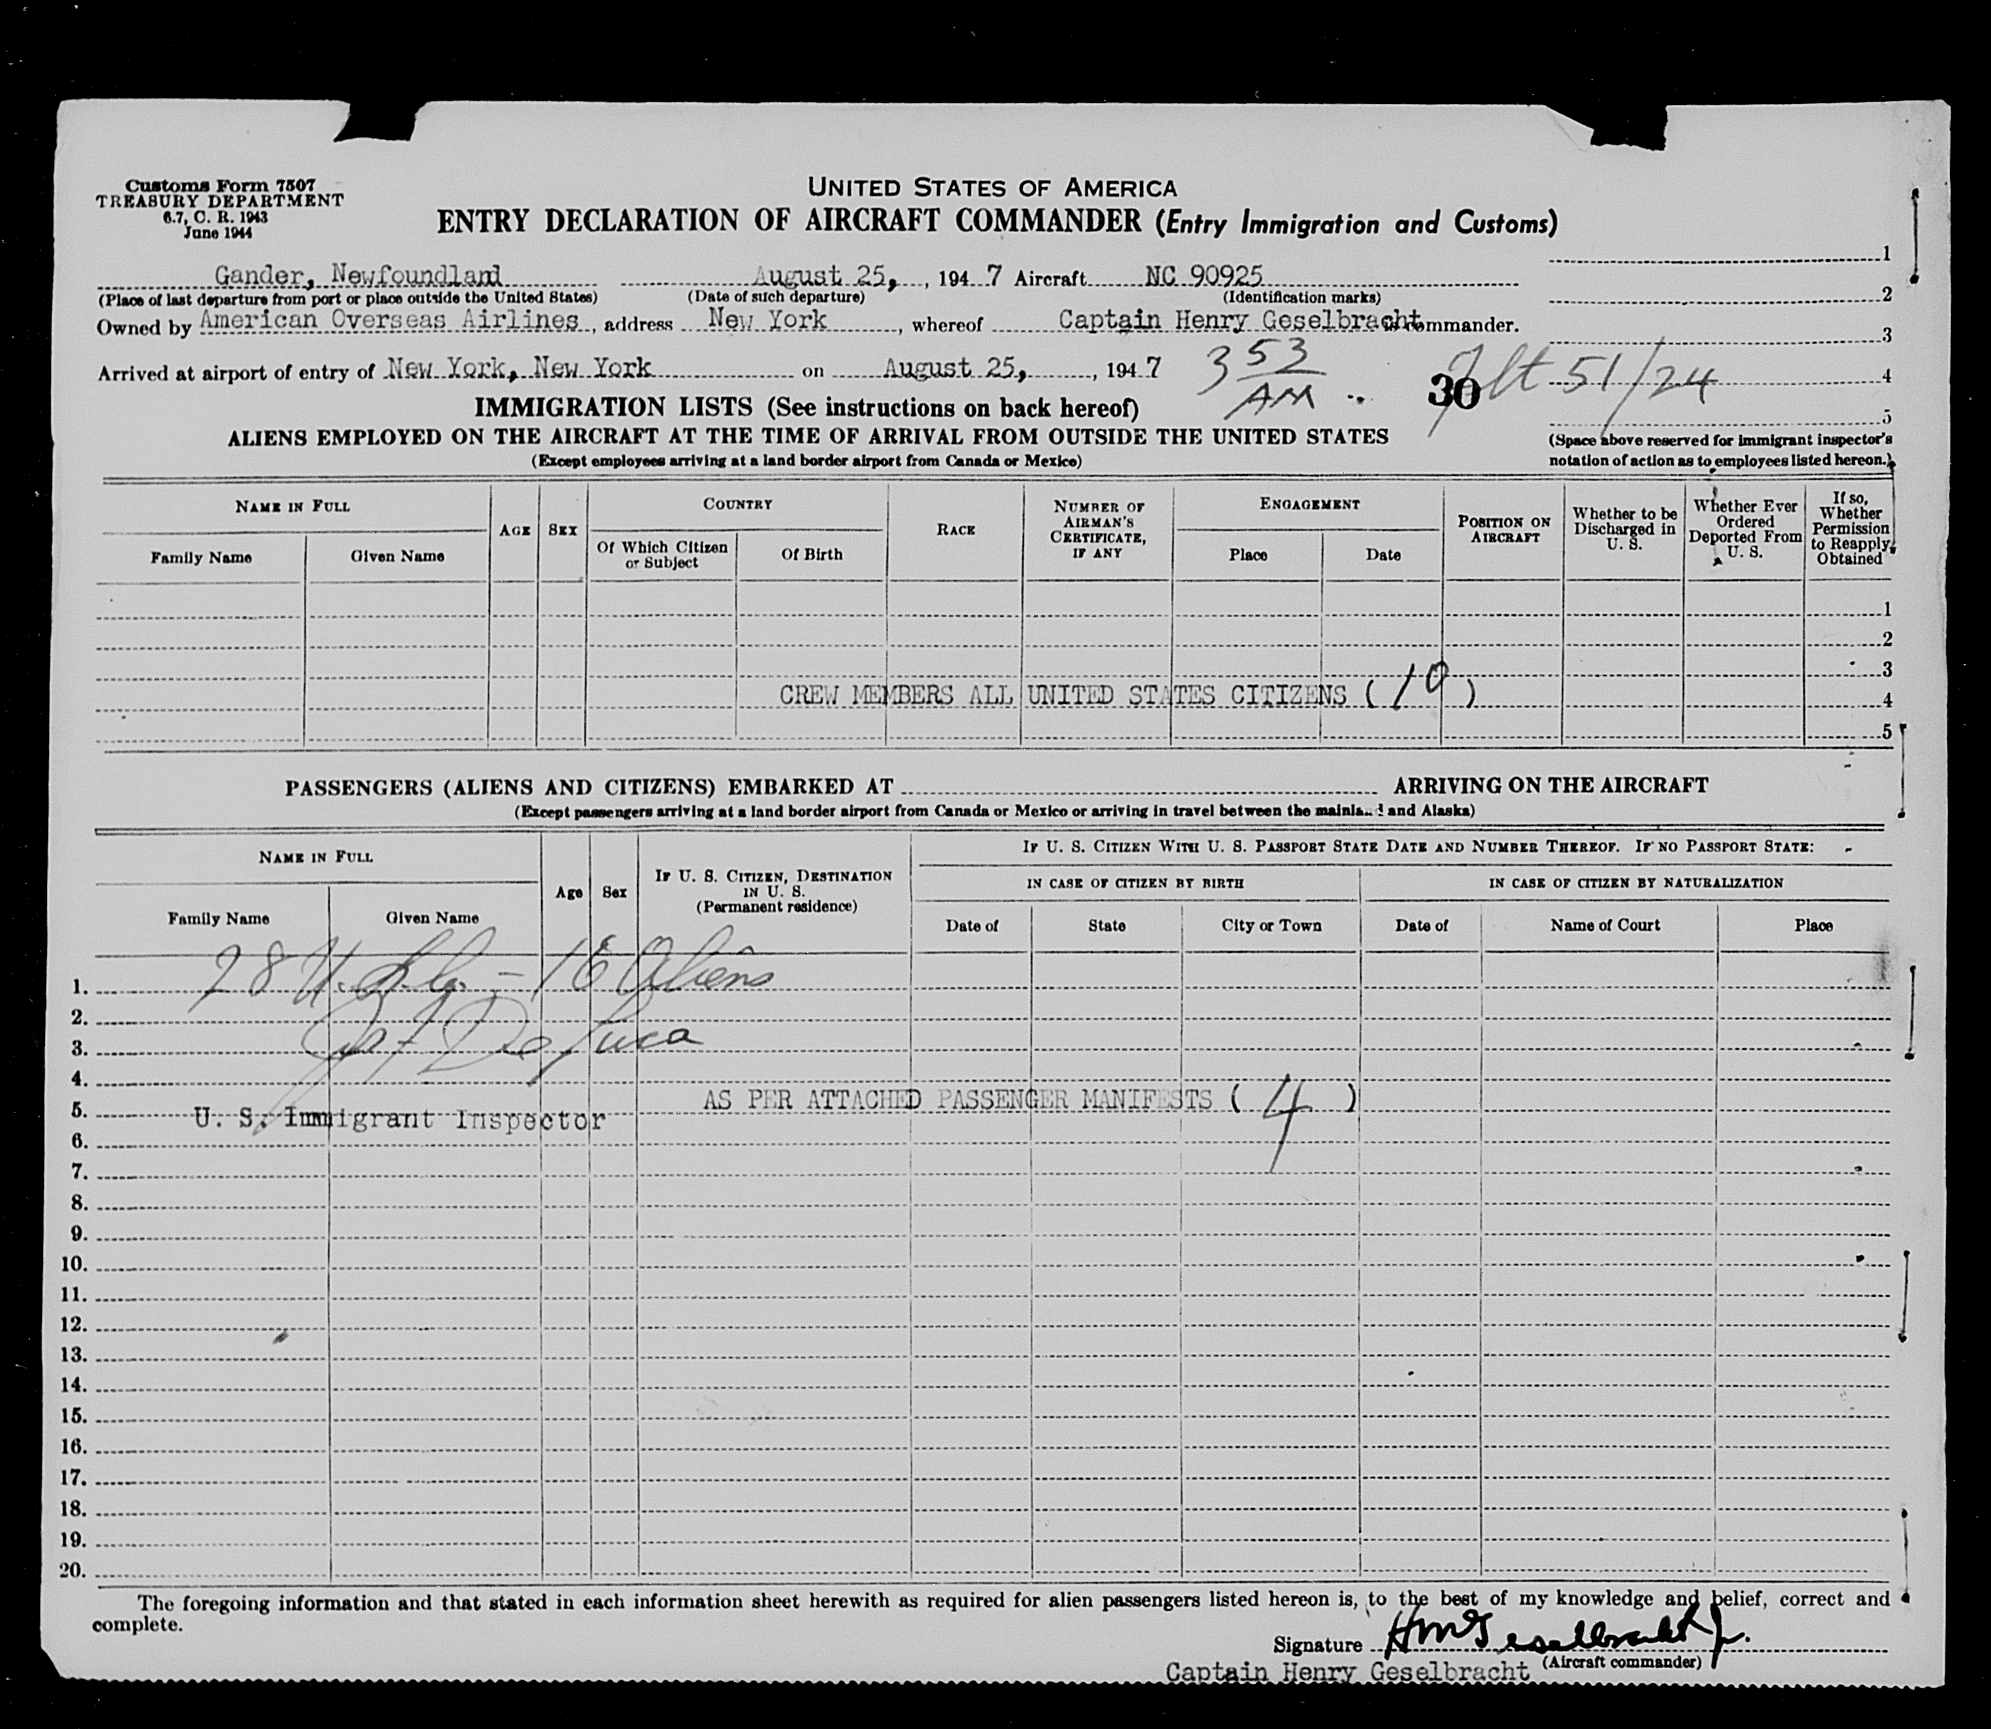 Customs Form 7507
TREASURY DEPARTMENT
6.7, C. R. 1943
June 1944
UNITED STATES OF AMERICA
ENTRY DECLARATION OF AIRCRAFT COMMANDER (Entry Immigration and Customs)
Gander, Newfoundland August 25, , 194 7 Aircraft NC 90925
(Place of last departure from port or place outside the United States) (Date of such departure) (Identification marks)
Owned by American Overseas Airlines , address New York , whereof Captain Henry Geselbracht is commander.
Arrived at airport of entry of New York, New York on August 25, , 194 7 3 53 AM
30 Flt 51/24
1
2
3
4
5
IMMIGRATION LISTS (See instructions on back hereof)
ALIENS EMPLOYED ON THE AIRCRAFT AT THE TIME OF ARRIVAL FROM OUTSIDE THE UNITED STATES
(Except employees arriving at a land border airport from Canada or Mexico)
(Space above reserved for immigrant inspector's
notation of action as to employees listed hereon.)
NAME IN FULL
Family Name Given Name
AGE SEX
COUNTRY
Of Which Citizen or Subject Of Birth
RACE
NUMBER OF AIRMAN'S CERTIFICATE, IF ANY
ENGAGEMENT
Place Date
POSITION ON AIRCRAFT
Whether to be Discharged in U. S.
Whether Ever Ordered Deported From U. S.
If so, Whether Permission to Reapply Obtained
1
2
3
CREW MEMBERS ALL UNITED STATES CITIZENS ( 10 )
4
5
PASSENGERS (ALIENS AND CITIZENS) EMBARKED AT ARRIVING ON THE AIRCRAFT
(Except passengers arriving at a land border airport from Canada or Mexico or arriving in travel between the mainland and Alaska)
NAME IN FULL
Family Name Given Name
Age Sex
IF U. S. CITIZEN, DESTINATION IN U. S.
(Permanent residence)
IF U. S. CITIZEN WITH U. S. PASSPORT STATE DATE AND NUMBER THEREOF. IF NO PASSPORT STATE:
IN CASE OF CITIZEN BY BIRTH IN CASE OF CITIZEN BY NATURALIZATION
Date of State City or Town Date of Name of Court Place
1. 28 U.S.C. - 16 Aliens
2.
3. De Luca
4.
AS PER ATTACHED PASSENGER MANIFESTS ( 4 )
5. U. S. Immigrant Inspector
6.
7.
8.
9.
10.
11.
12.
13.
14.
15.
16.
17.
18.
19.
20.
The foregoing information and that stated in each information sheet herewith as required for alien passengers listed hereon is, to the best of my knowledge and belief, correct and
complete.
Signature HM Geselbracht Jr.
(Aircraft commander)
Captain Henry Geselbracht